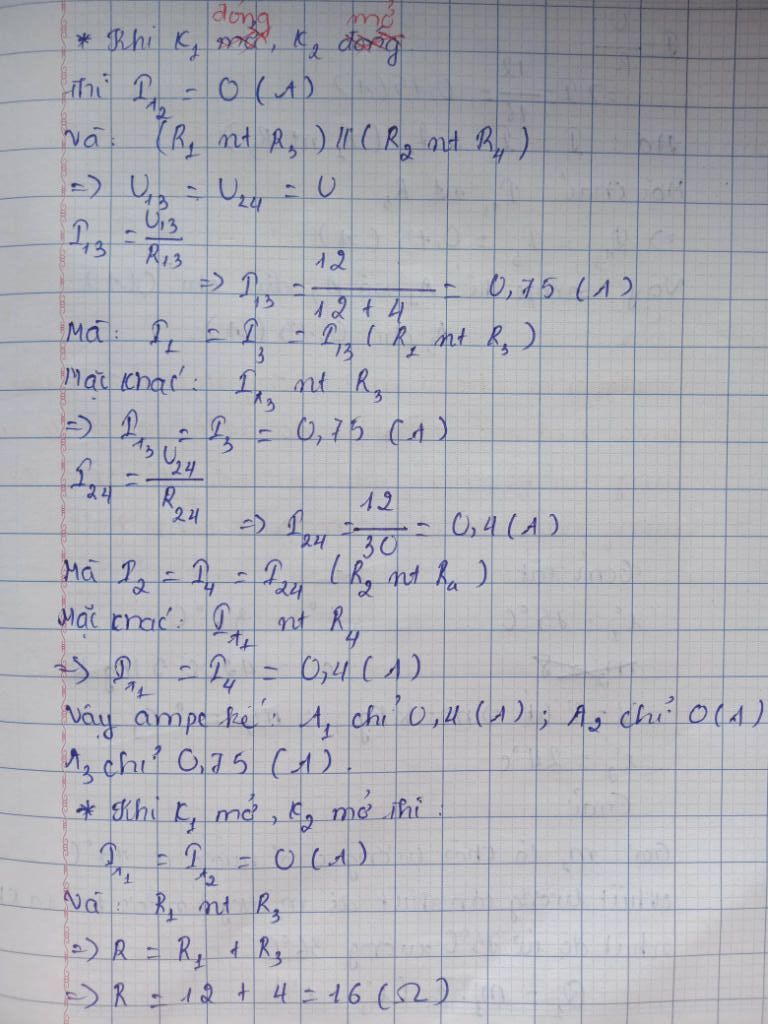 đóng mở
* Khi K₁ mở, K₂ đóng
thì I_A₂ = 0 (A)
Và: (R₁ nt R₃) // (R₂ nt R₄)
=> U₁₃ = U₂₄ = U
I₁₃ = U₁₃ / R₁₃
=> I₁₃ = 12 / (12 + 4) = 0,75 (A)
Mà: I₁ = I₃ = I₁₃ (R₁ nt R₃)
Mặc khác: I_A₃ nt R₃
=> I_A₃ = I₃ = 0,75 (A)
I₂₄ = U₂₄ / R₂₄
=> I₂₄ = 12 / 30 = 0,4 (A)
Mà I₂ = I₄ = I₂₄ (R₂ nt R₄)
Mặc khác: I_A₁ nt R₄
=> I_A₁ = I₄ = 0,4 (A)
Vậy ampe kế: A₁ chỉ 0,4 (A); A₂ chỉ 0 (A)
A₃ chỉ 0,75 (A).
* Khi K₁ mở, K₂ mở thì:
I_A₁ = I_A₂ = 0 (A)
Và: R₁ nt R₃
=> R = R₁ + R₃
=> R = 12 + 4 = 16 (Ω)